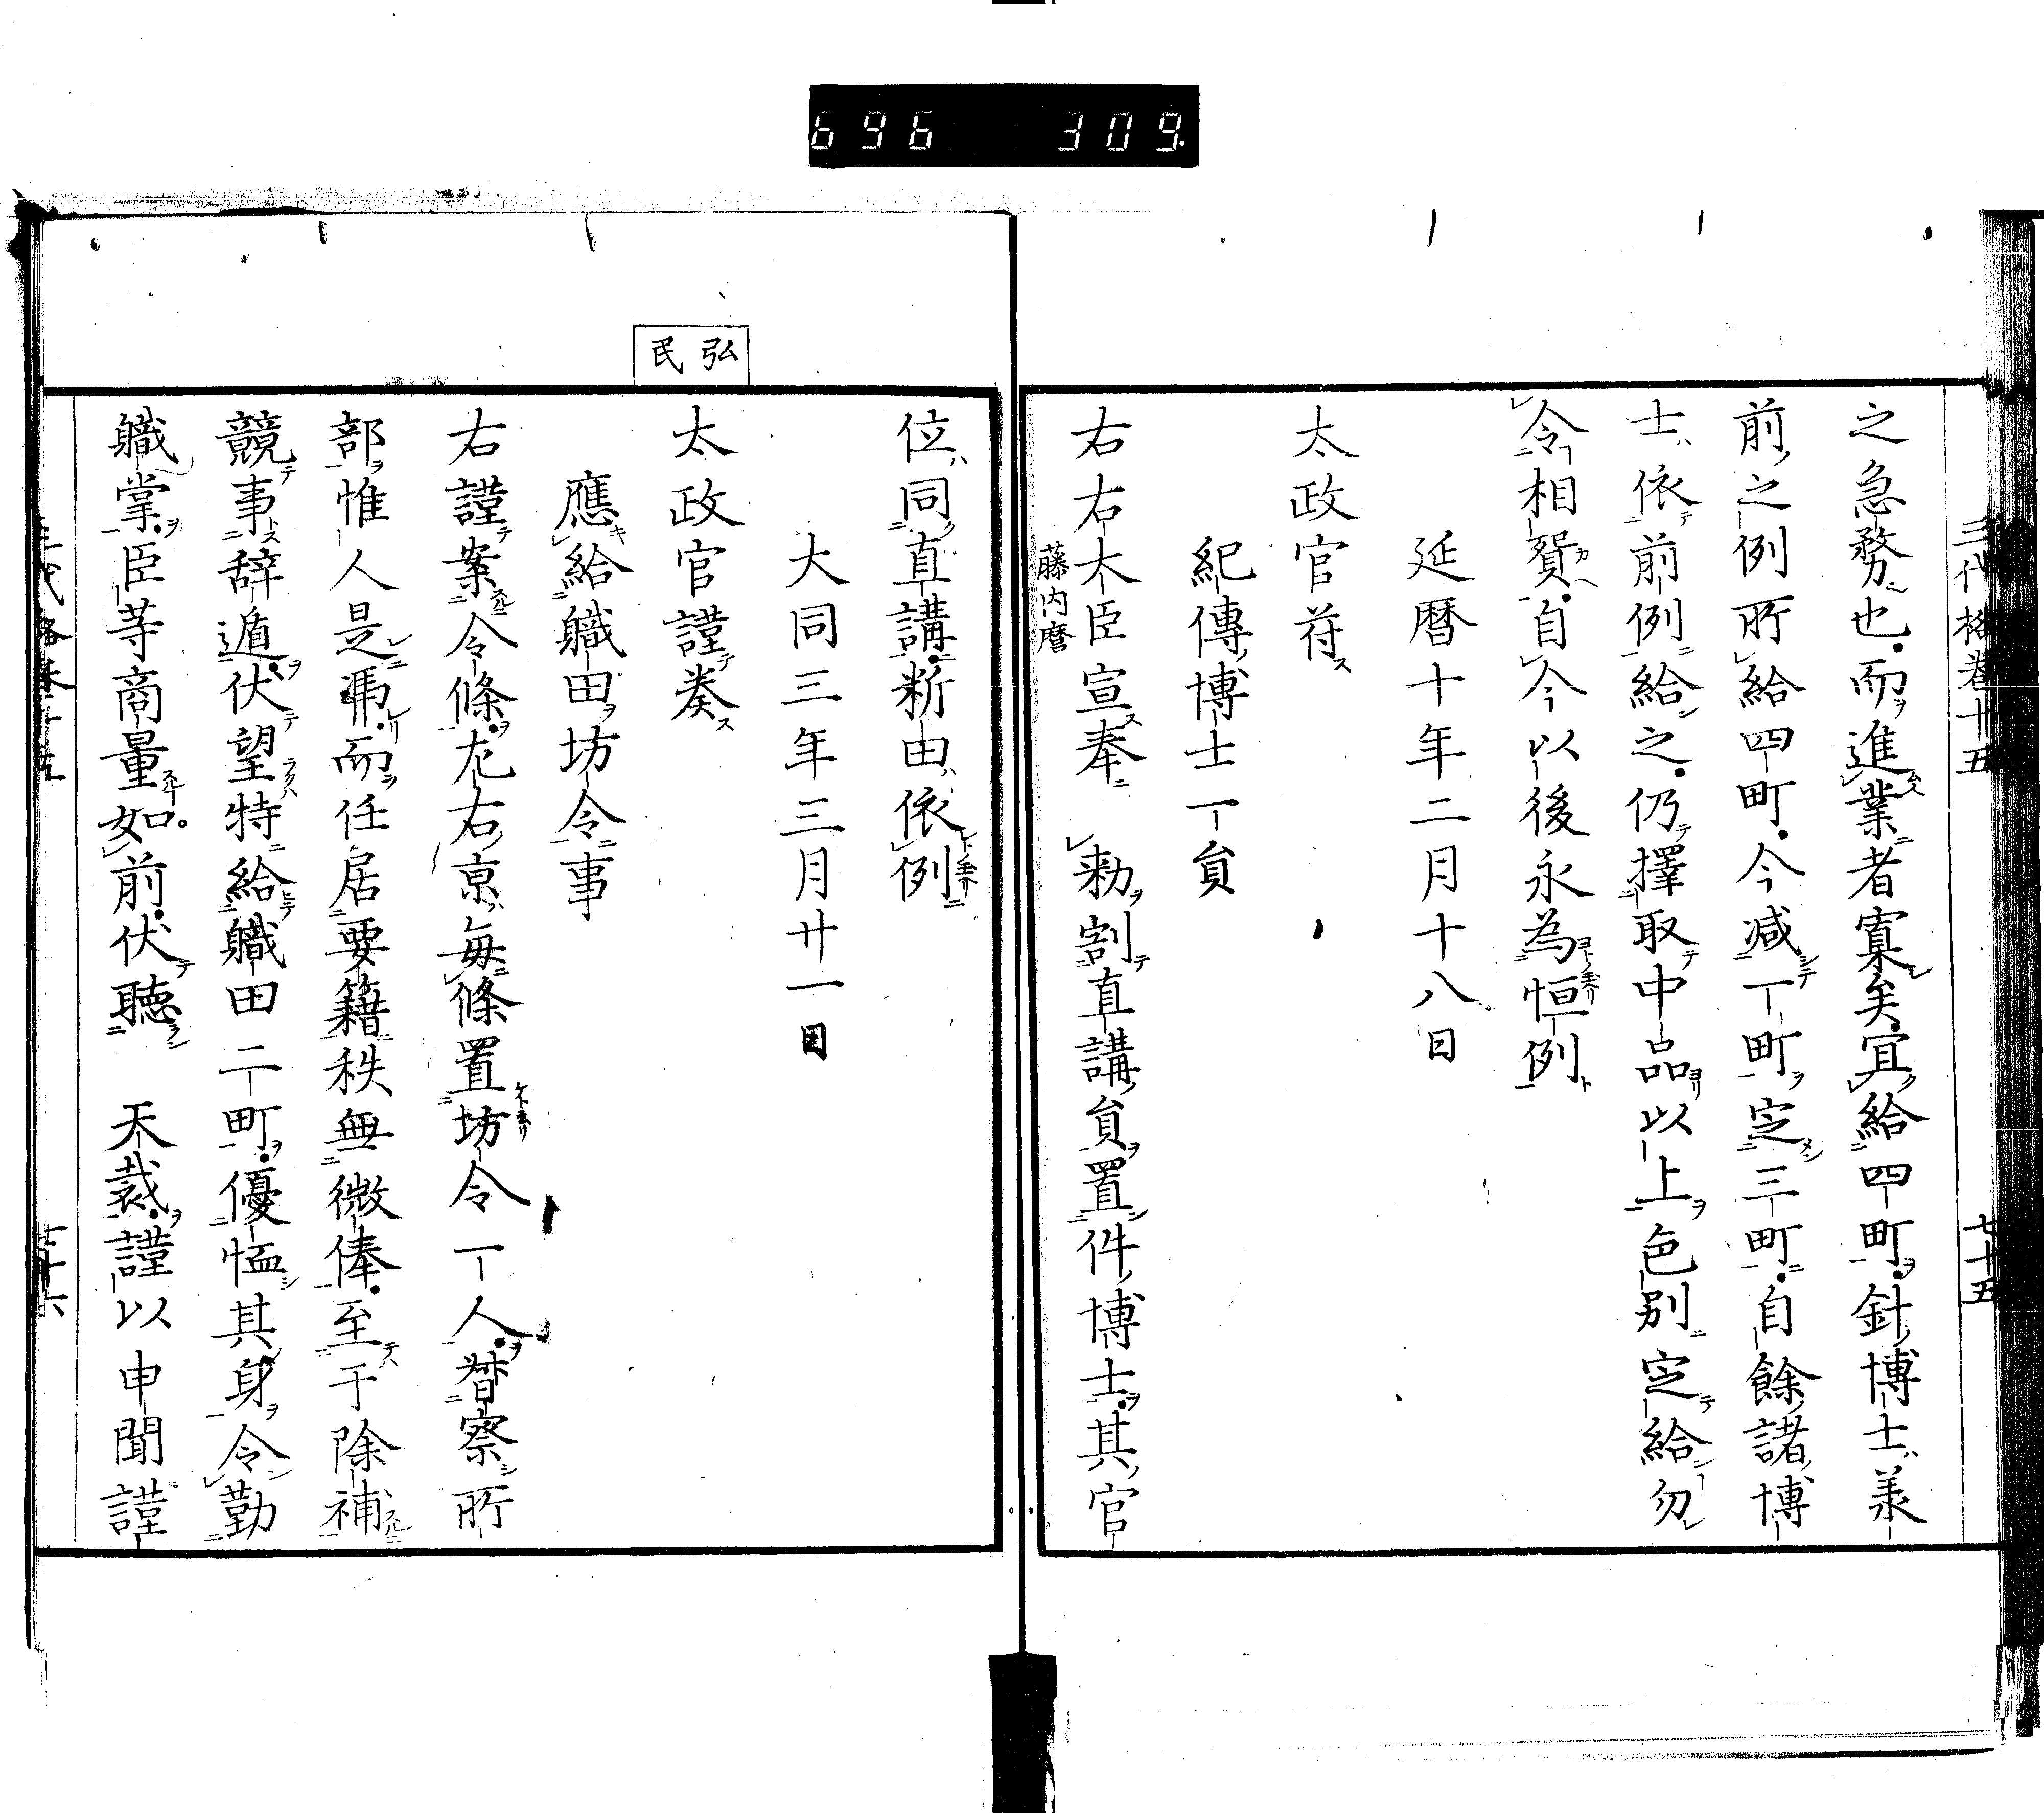 696 309.
三代格巻十五 七十五
之急務也而進業者寡矣宜給四町針博士準
前之例所給四町今減一町定三町自餘諸博
士依前例給之仍擇取中品以上色別定給勿
令相貿自今以後永為恒例
延暦十年二月十八日
太政官符
紀傳博士一員
右右大臣宣奉 勅割直講員置件博士其官
藤内麿
位同直講新由依例
大同三年三月廿一日
弘民
太政官謹奏
應給職田坊令事
右謹案令條左右京毎條置坊令一人督察所
部惟人是馮而任居要籍秩無微俸至于除補
競事辞遁伏望特給職田二町優恤其身令勤
職掌臣等商量如前伏聴 天裁謹以申聞謹